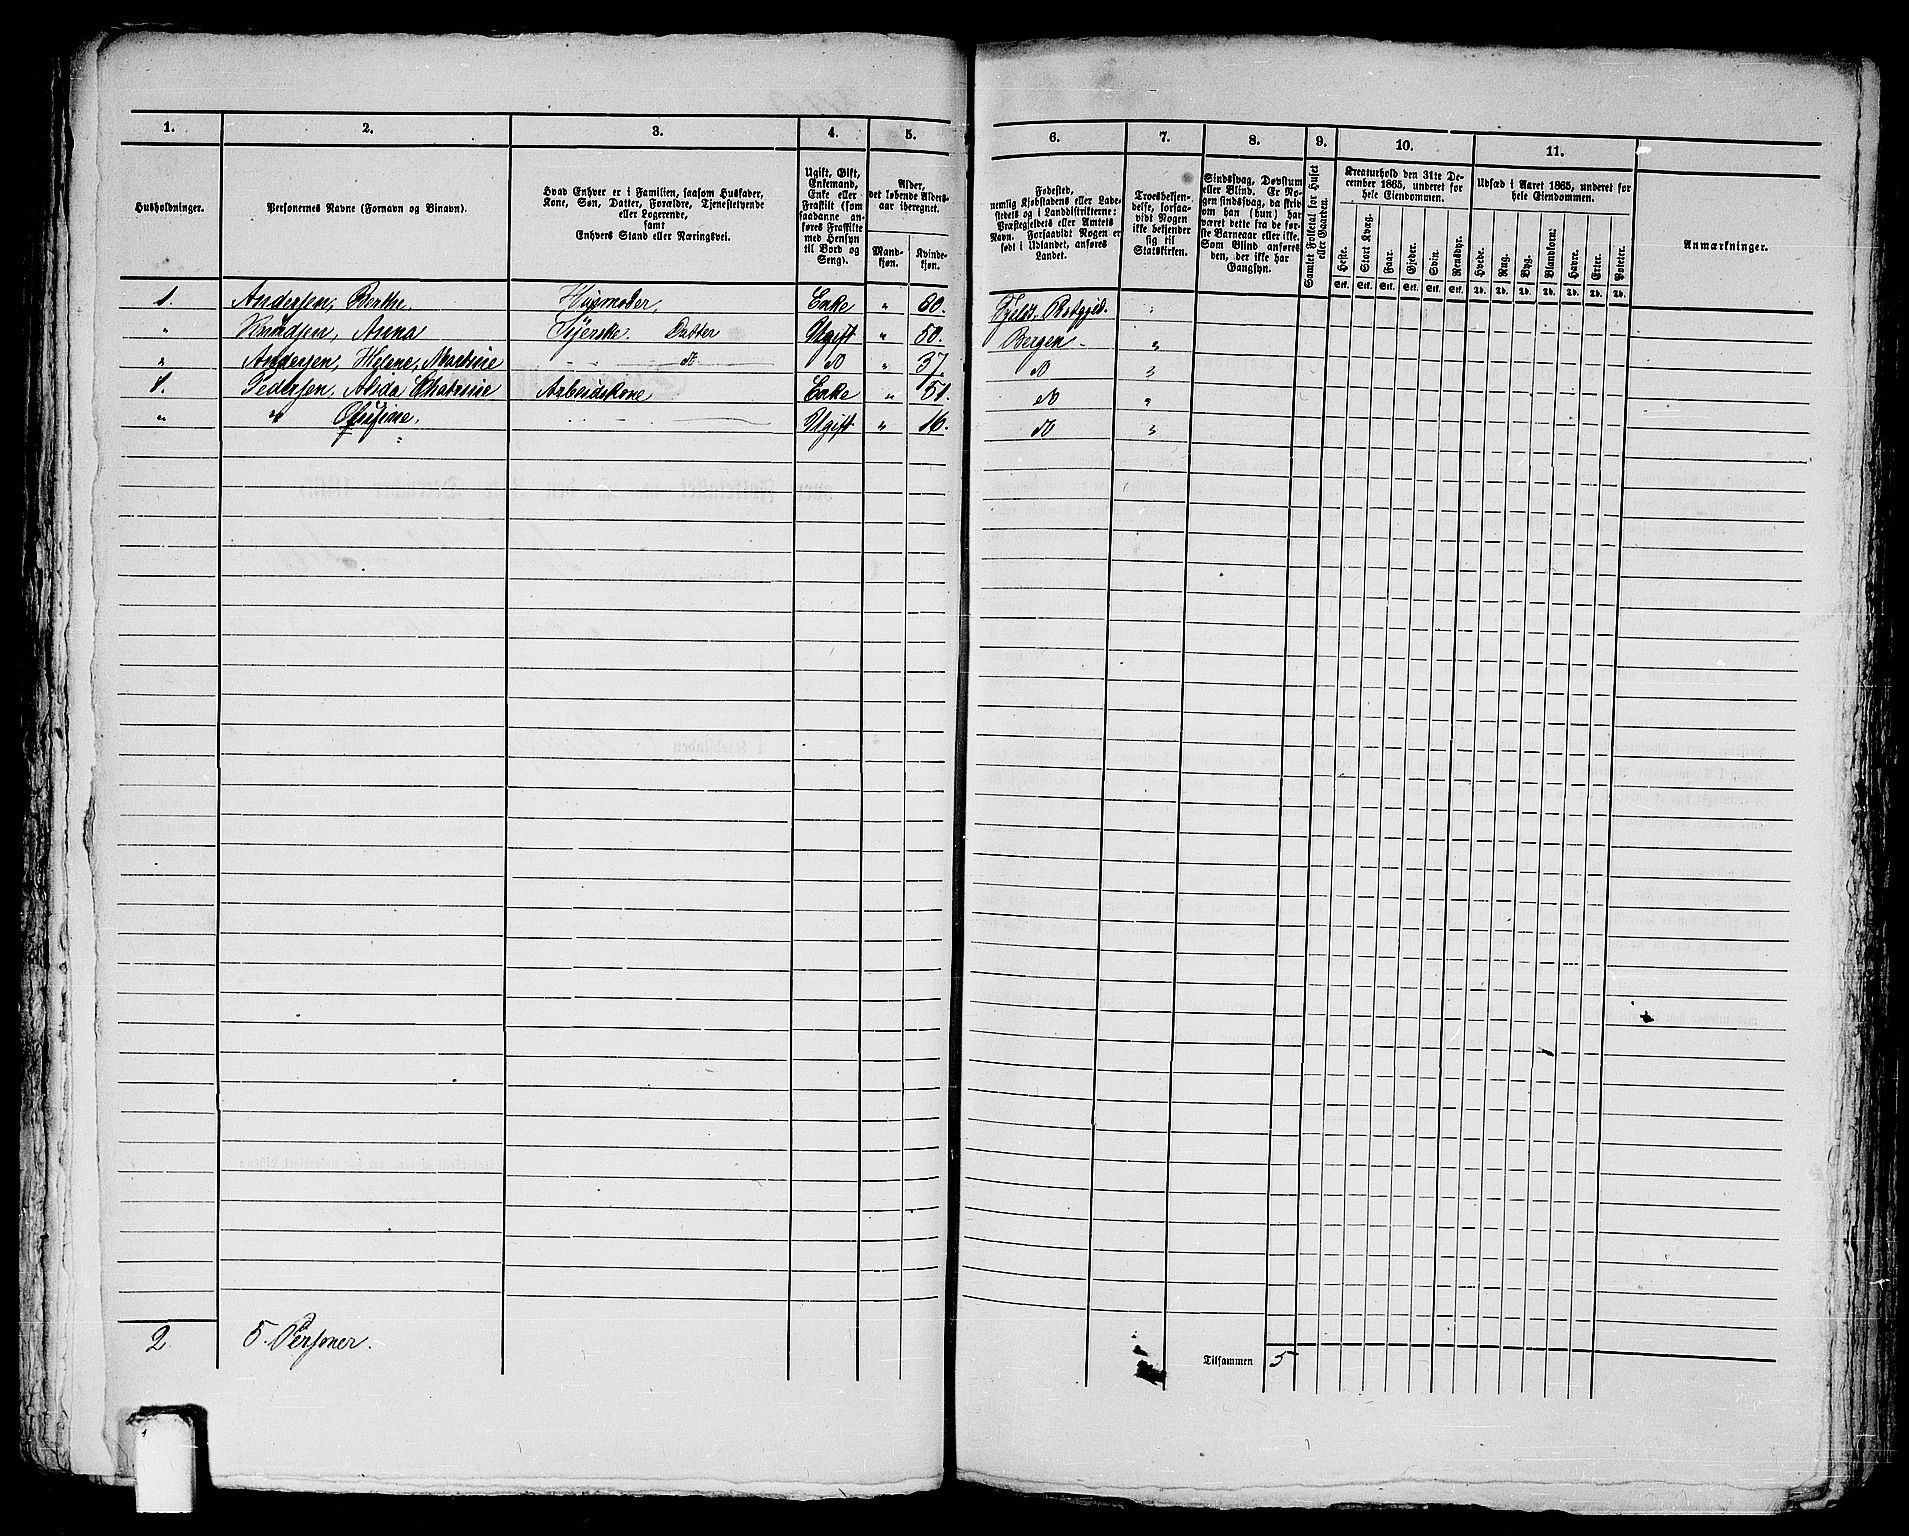 1. 2. 3. 4. 5. 6. 7. 8. 9. 10. 11.
Husholdninger.
Personernes Navne (Fornavn og Binavn).
Hvad Enhver er i Familien, saasom Husfader,
Kone, Søn, Datter, Forældre, Tjenestetyende
eller Logerende,
samt
Enhvers Stand eller Næringsvei.
Ugift, Gift,
Enkemand,
Enke eller
Fraskilt (som
saadanne an-
føres Fraskilte
med Hensyn
til Bord og
Seng).
Alder,
det løbende Alders-
aar iberegnet.
Mand-
kjøn.
Kvinde-
kjøn.
Fødested,
nemlig Kjøbstadens eller Lade-
stedets og i Landdistrikterne:
Præstegjeldets eller Amtets
Navn. Forsaavidt Nogen er
født i Udlandet, anføres
Landet.
Troesbekjen-
delse, forsaa-
vidt Nogen
ikke bekjender
sig til
Statskirken.
Sindssvag, Døvstum
eller Blind. Er No-
gen sindssvag, da skriv
om han (hun) har
været dette fra de før-
ste Barneaar eller ikke.
Som Blind anføres
den, der ikke har
Gangsyn.
Samlet Folketal for Huset
eller Gaarden.
Kreaturhold den 31te De-
cember 1865, underet for
hele Eiendommen.
Heste. Stort Kvæg. Faar. Gjeder. Svin. Rensdyr.
Stk. Stk. Stk. Stk. Stk. Stk.
Udsæd i Aaret 1865, underet for
hele Eiendommen.
Hvede. Rug. Byg. Blandkorn. Havre. Erter. Poteter.
Td. Td. Td. Td. Td. Td. Td.
Anmærkninger.
1. Andersen, Berthe Husmoder, Enke " 60. Prstgjeld. "
" Knudsen, Anna Syerske. Datter Ugift " 50. Bergen "
" Andersen, Helene, Martine do do " 37. do "
1. Pedersen, Alida Chatrine Arbeidskone Enke " 51. do "
" " Olufine. Ugift " 16. do "
2 5. Personer. Tilsammen 5